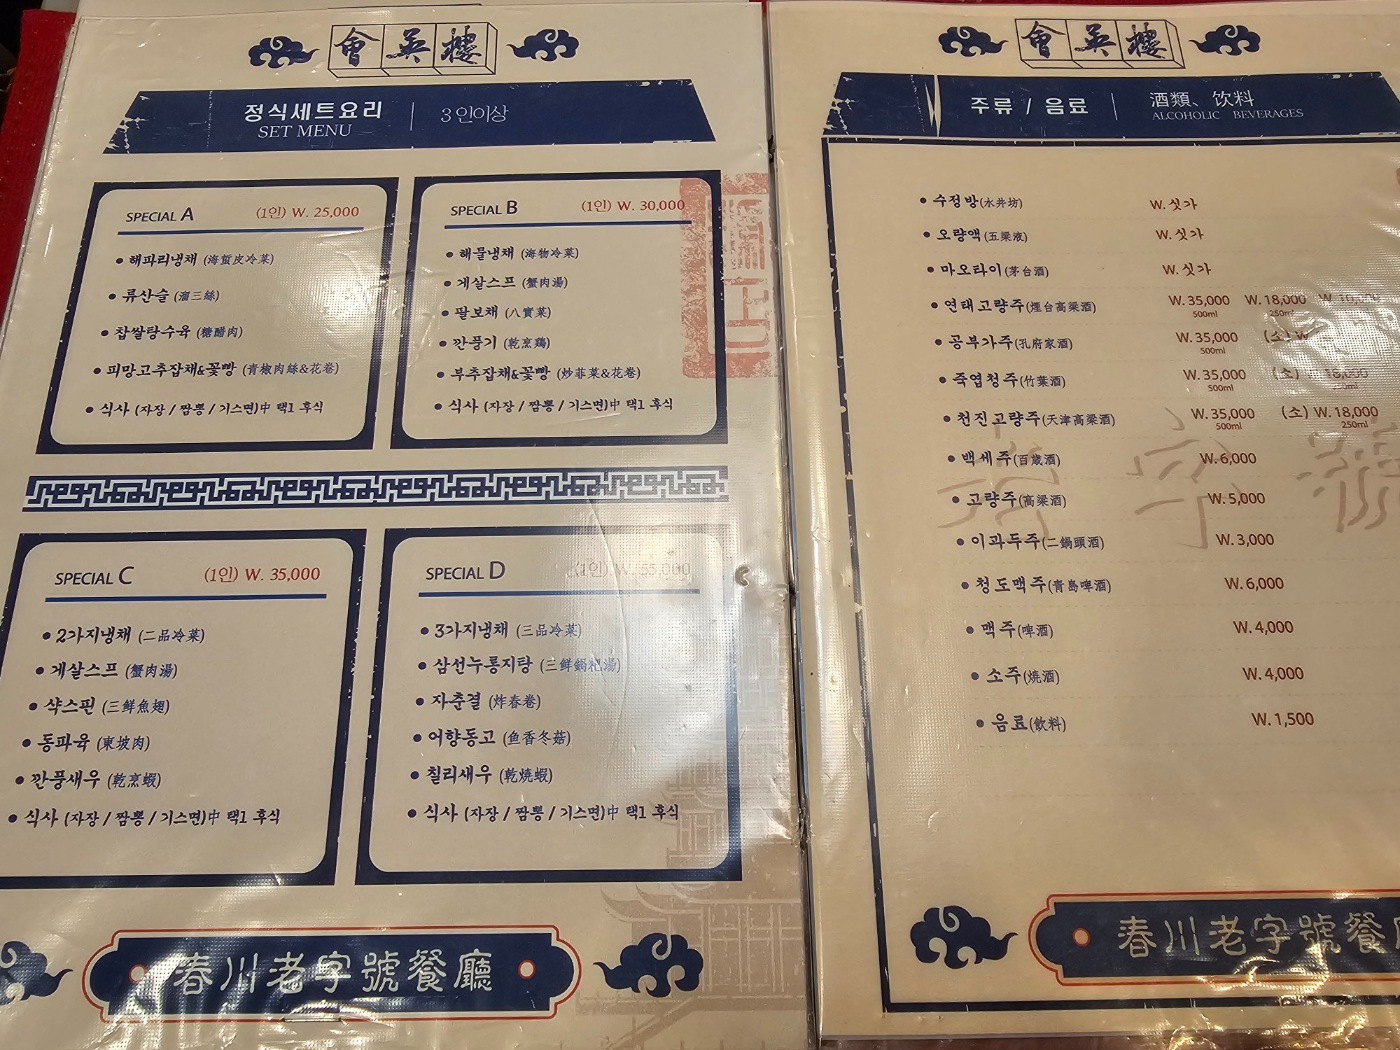 會英樓
정식세트요리 | 3인이상
SET MENU
SPECIAL A (1인) W. 25,000
• 해파리냉채 (海蜇皮冷菜)
• 류산슬 (溜三絲)
• 찹쌀탕수육 (糖醋肉)
• 피망고추잡채&꽃빵 (青椒肉絲&花卷)
• 식사 (자장 / 짬뽕 / 기스면)中 택1 후식
SPECIAL B (1인) W. 30,000
• 해물냉채 (海物冷菜)
• 게살스프 (蟹肉湯)
• 팔보채 (八寶菜)
• 깐풍기 (乾烹鶏)
• 부추잡채&꽃빵 (炒韮菜&花卷)
• 식사 (자장 / 짬뽕 / 기스면)中 택1 후식
SPECIAL C (1인) W. 35,000
• 2가지냉채 (二品冷菜)
• 게살스프 (蟹肉湯)
• 샥스핀 (三鮮魚翅)
• 동파육 (東坡肉)
• 깐풍새우 (乾烹蝦)
• 식사 (자장 / 짬뽕 / 기스면)中 택1 후식
SPECIAL D (1인) W. 55,000
• 3가지냉채 (三品冷菜)
• 삼선누룽지탕 (三鮮鍋杷湯)
• 자춘결 (炸春卷)
• 어향동고 (鱼香冬菇)
• 칠리새우 (乾燒蝦)
• 식사 (자장 / 짬뽕 / 기스면)中 택1 후식
春川老字號餐廳
會英樓
주류 / 음료 | 酒類、饮料
ALCOHOLIC BEVERAGES
• 수정방(水井坊) W.싯가
• 오량액(五梁液) W.싯가
• 마오타이(茅台酒) W.싯가
• 연태고량주(煙台高梁酒) W.35,000 W.18,000
500ml 250ml
• 공부가주(孔府家酒) W.35,000 (소) W
500ml
• 죽엽청주(竹葉酒) W.35,000 (소)
500ml
• 천진고량주(天津高梁酒) W.35,000 (소) W.18,000
500ml 250ml
• 백세주(百歲酒) W.6,000
• 고량주(高梁酒) W.5,000
• 이과두주(二鍋頭酒) W.3,000
• 청도맥주(青島啤酒) W.6,000
• 맥주(啤酒) W.4,000
• 소주(燒酒) W.4,000
• 음료(飲料) W.1,500
春川老字號餐